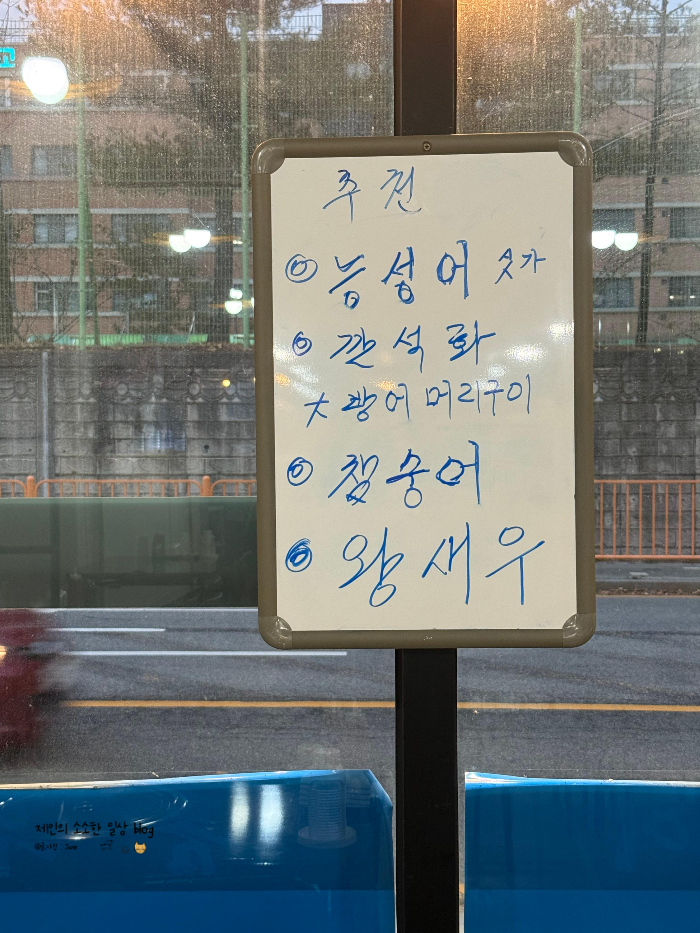 추천
◎ 능성어 싯가
◎ 깐석화
大 광어머리구이
◎ 참숭어
◎ 왕새우
제인의 소소한 일상 blog